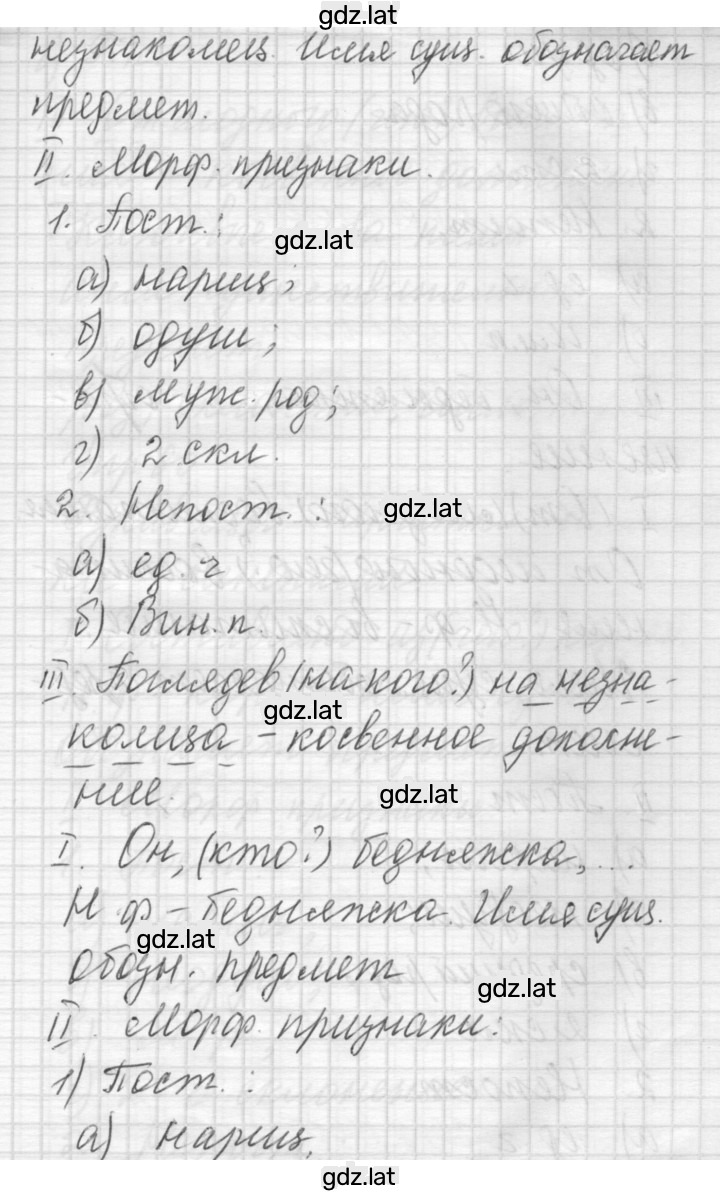 gdz.lat
незнакомец. Имя сущ. обозначает
предмет.
II. Морф. признаки.
1. Пост.:
gdz.lat
а) нариц;
б) одуш;
в) муж. род;
г) 2 скл.
2. Непост. :
gdz.lat
а) ед. ч
б) Вин. п.
III. Поглядев (на кого?) на незна-
gdz.lat
комца - косвенное дополне-
ние.
gdz.lat
I. Он, (кто?) бедняжка, ...
Н. ф - бедняжка. Имя сущ.
gdz.lat
обозн. предмет
gdz.lat
II. Морф. признаки:
1) Пост. :
а) нариц.
gdz.lat